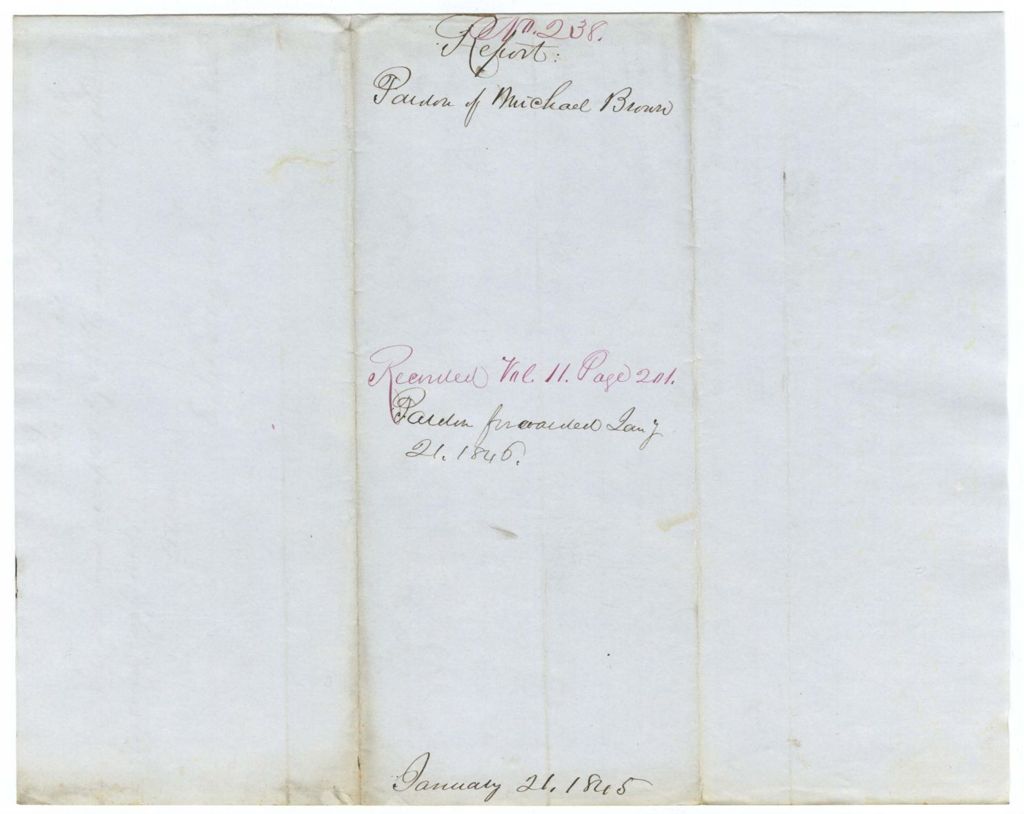 No. 238.
Report:
Pardon of Michael Brown
Recorded Vol. 11. Page 201.
Pardon forwarded Jany
21. 1846.
January 21, 1845